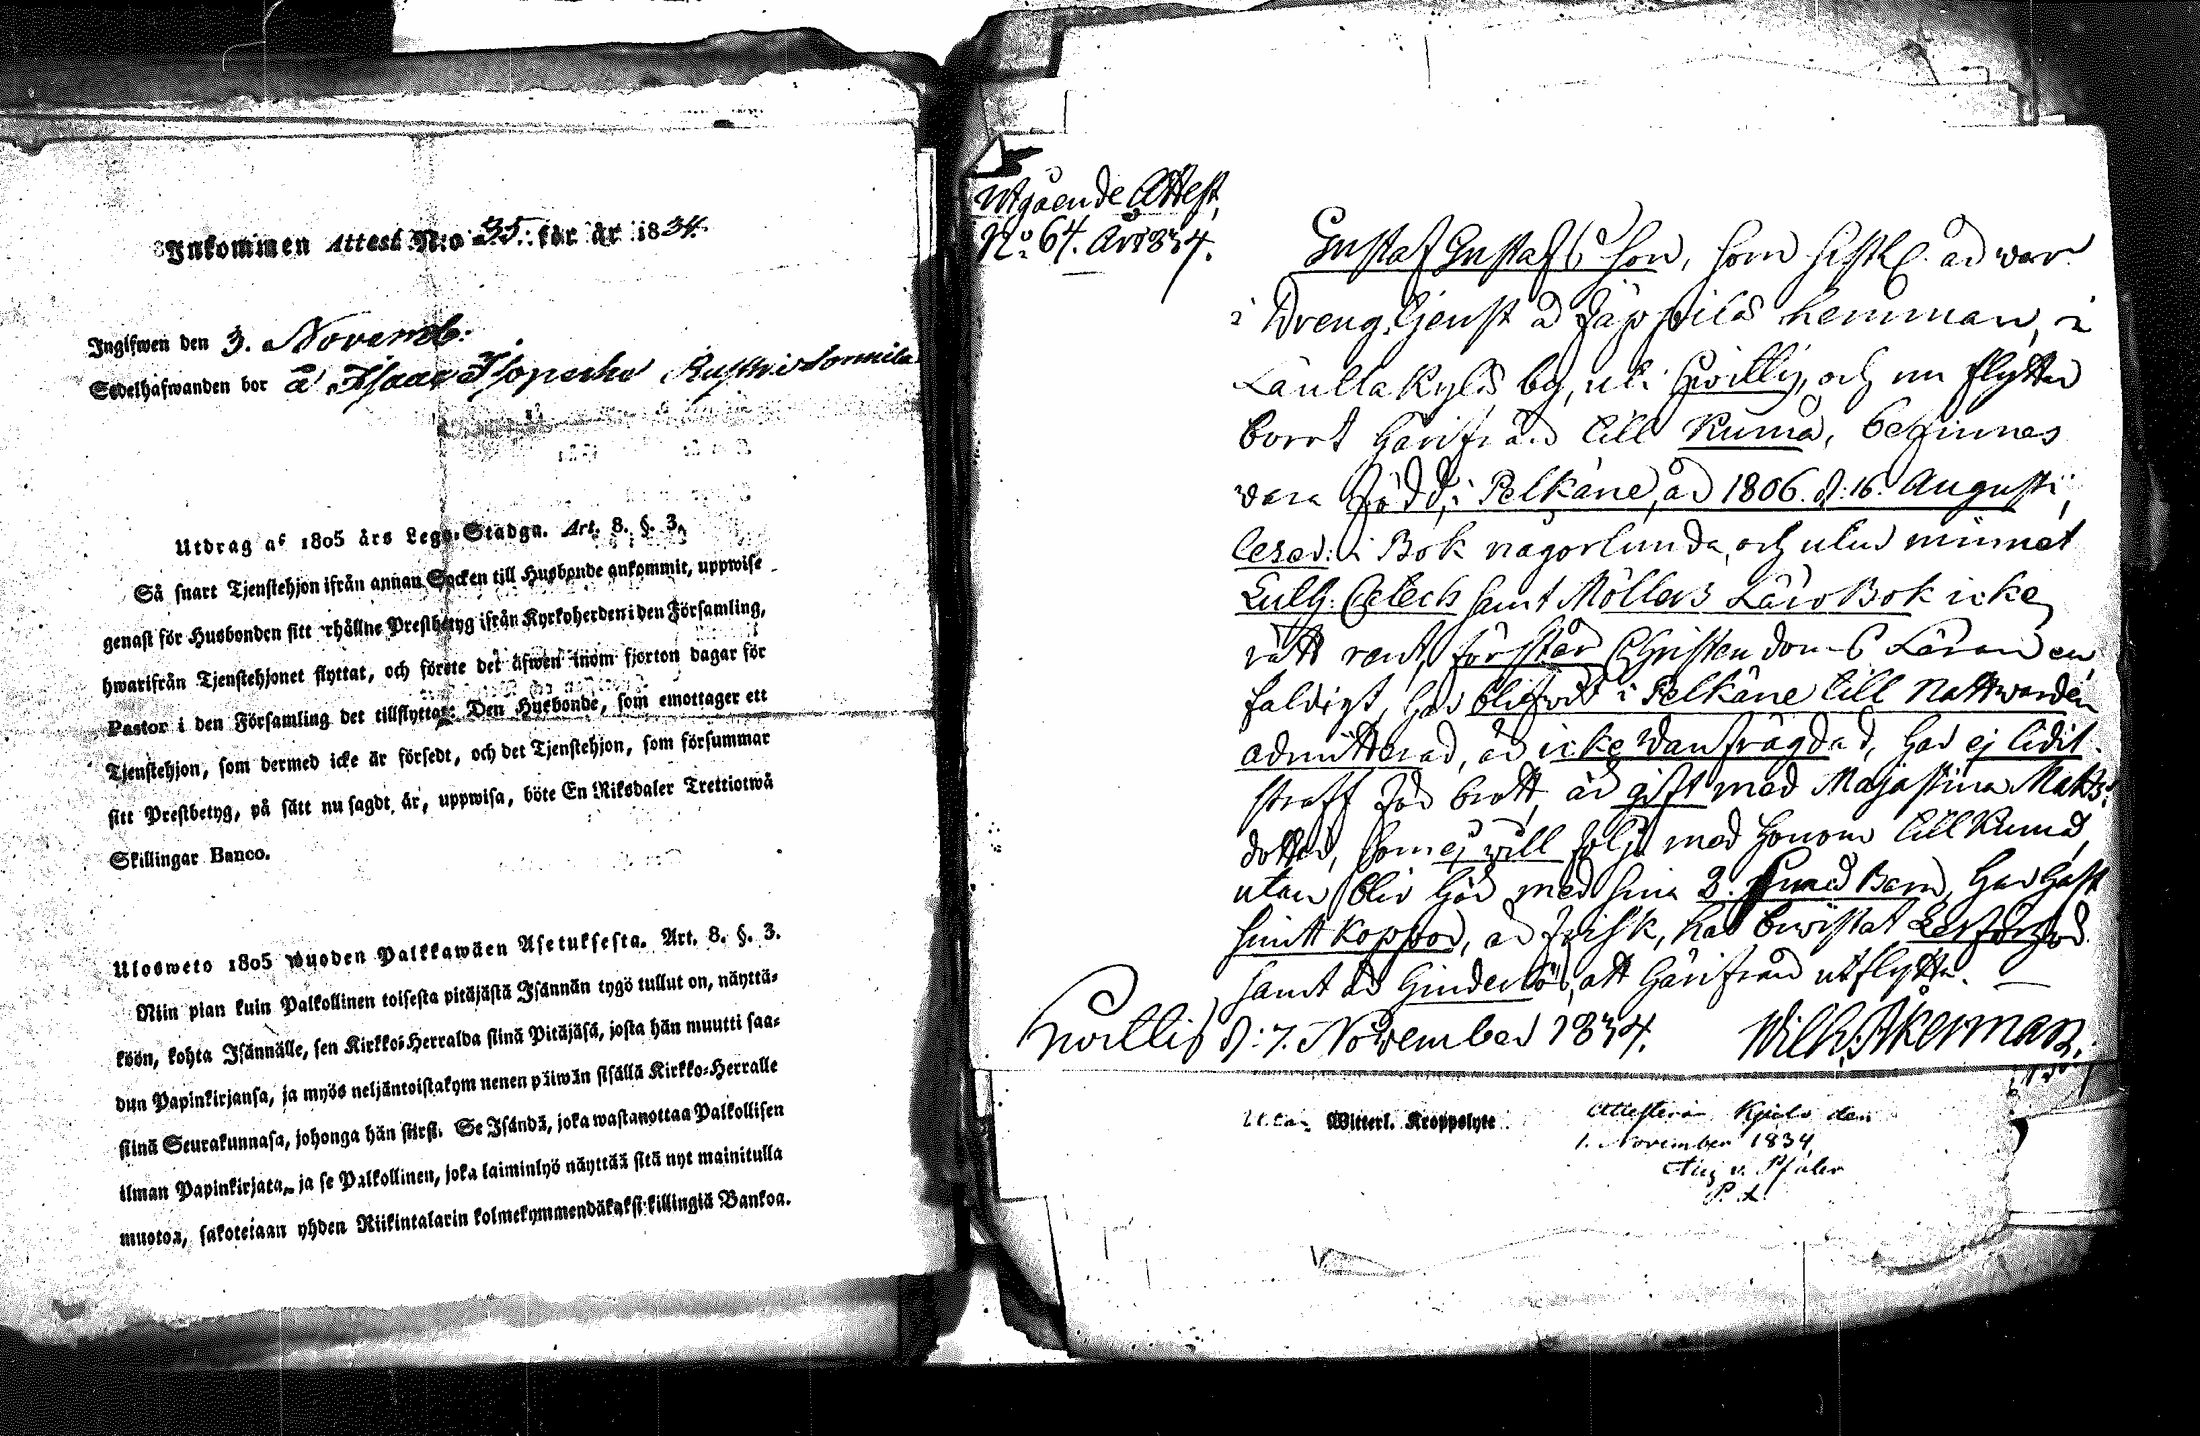 Inkommen Attest N:o 35. för år 1834.
Inglifwen den 3. Novemb:
Sedelhafwanden bor å Isaac Isoperhe Rusth:
Utdrag af 1805 års Lego-Stadga. Art. 8. §. 3.
Så snart Tjenstehjon ifrån annan Socken till Husbonde ankommit, uppwise
genast för Husbonden sitt erhållne Prestbetyg ifrån Kyrkoherden i den Församling,
hwarifrån Tjenstehjonet flyttat, och förete det äfwen inom fjorton dagar för
Pastor i den Församling det tillflyttat: Den Husbonde, som emottager ett
Tjenstehjon, som dermed icke är försedt, och det Tjenstehjon, som försummar
sitt Prestbetyg, på sätt nu sagdt är, uppwisa, böte En Riksdaler Trettiotwå
Skillingar Banco.
Ulosweto 1805 wuoden Palkkawäen Asetuksesta. Art. 8. §. 3.
Niin pian kuin Palkollinen toisesta pitäjästä Isännän tygö tullut on, näyttä-
köön, kohta Isännälle, sen Kirkko-Herralda siinä Pitäjäsä, josta hän muutti saa-
dun Papinkirjansa, ja myös neljäntoistakymnenen päiwän sisällä Kirkko-Herralle
siinä Seurakunnasa, johonga hän siirsi. Se Isändä, joka wastanottaa Palkollisen
ilman Papinkirjata, ja se Palkollinen, joka laiminlyö näyttää sitä nyt mainitulla
muotoa, sakotetaan yhden Riikintalarin kolmekymmendäkaksi killingiä Bankoa.
Utgående Attest,
No. 64. År 1834.
Gustaf Gustafsson, som sistl. år war
i Dreng tjenst å Jäppilä hemman, i
Laullakylä by, uti och nu flyttar
borrt härifrån till Kumå, befinnes
vara född i Pelkäne, år 1806. d. 16. Augusti,
läser i Bok någorlunda, och utur minnet
Luth. Catech samt Möllers Läro Bok icke
rätt rent, förstår Christendoms Läran en-
faldigt, har blifvit i Pelkäne till Nattwarden
admitterad, är icke wanfrägdad, har ej lidit
straff för brott, är gift med Maja Stina Matts-
dotter, som ej will följa med honom till Kumå,
utan blir här med sina 2. små Barn, har haft
smittkoppor, är frisk, har bewistat Läsförhör
samt är hinderlös, att härifrån utflytta.
d. 7. November 1834. Wilh. Åkerman
Utan Witterl. Kroppslyte
Attesterar Kjulo den
1. November 1834,
Aug v. Pfaler